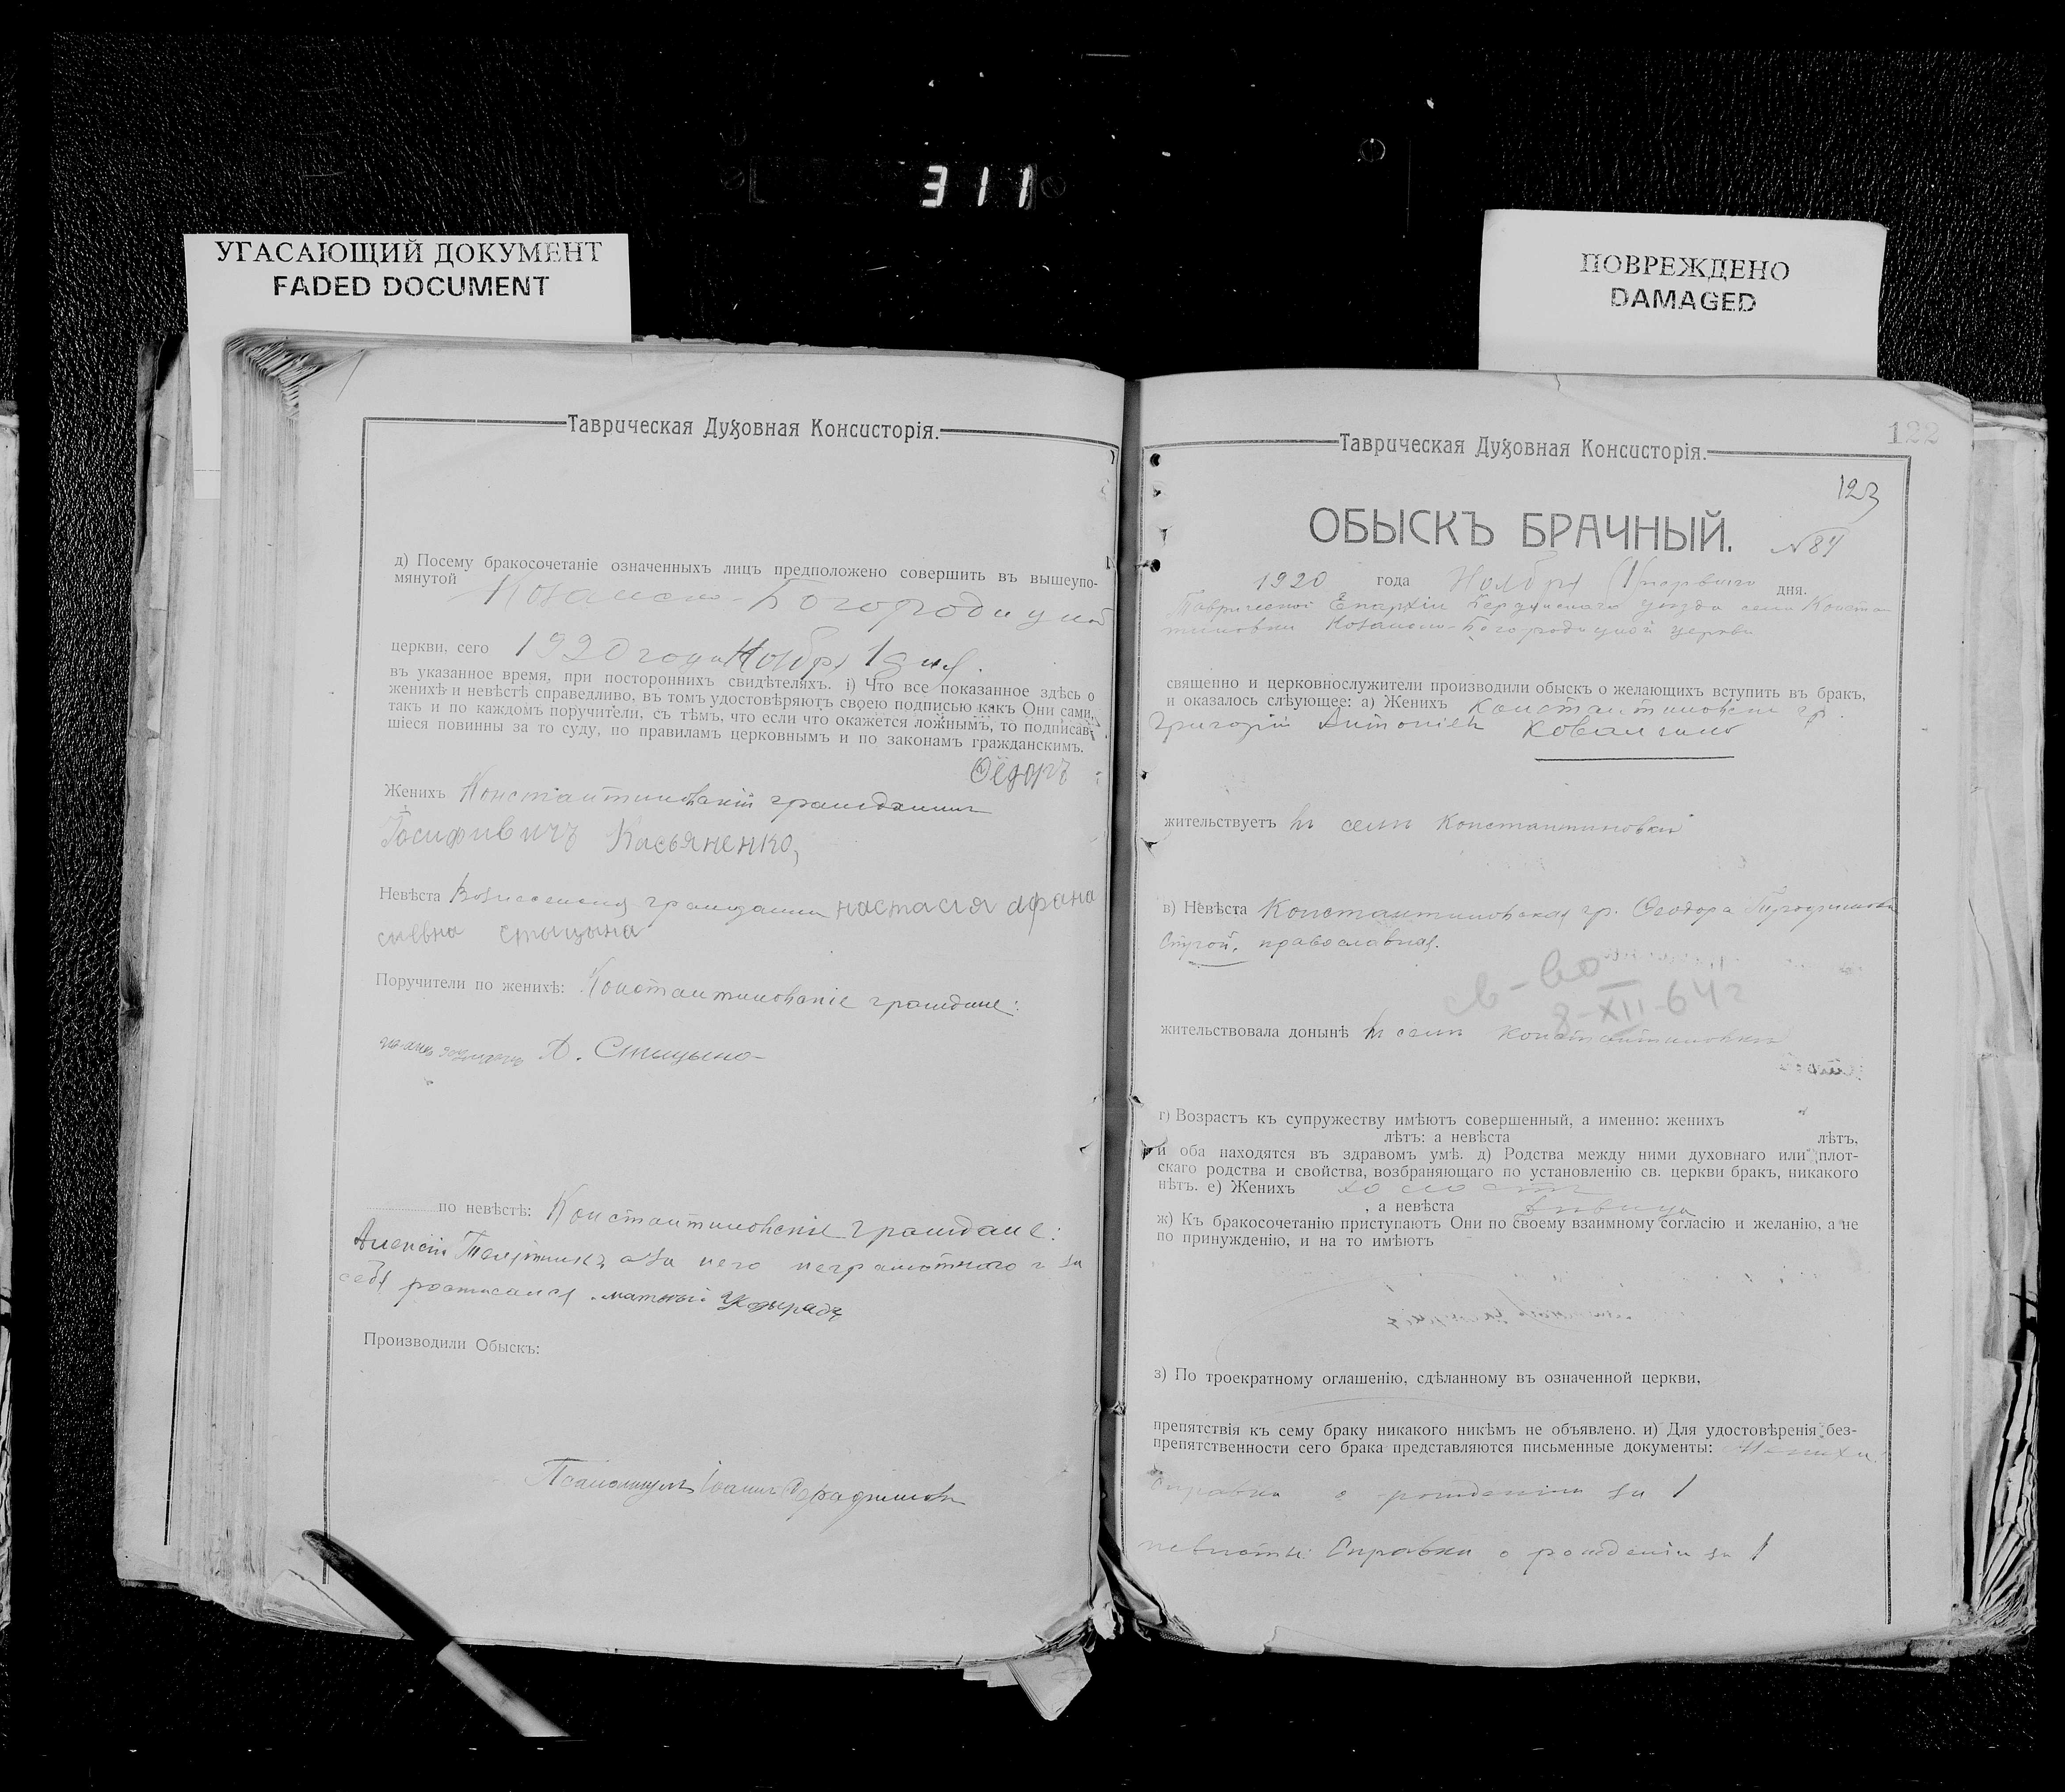 311
УГАСАЮЩИЙ ДОКУМЕНТ
FADED DOCUMENT
ПОВРЕЖДЕНО
DAMAGED
Таврическая Духовная Консисторія.
д) Посему бракосочетаніе означенныхъ лицъ предположено совершить въ вышеупо-
мянутой Казанско-Богородицкой
церкви, сего 1920 года Ноября 1 дня.
въ указанное время, при постороннихъ свидѣтеляхъ. і) Что все показанное здѣсь о
женихѣ и невѣстѣ справедливо, въ томъ удостовѣряютъ своею подписью какъ Они сами,
такъ и по каждомъ поручители, съ тѣмъ, что если что окажется ложнымъ, то подписав-
шіеся повинны за то суду, по правиламъ церковнымъ и по законамъ гражданскимъ.
Ѳёдоръ
Женихъ Константиновскій гражданинъ
Іосифивичъ Касьяненко,
Невѣста гражданка настасія афана
сиевна стицына
Поручители по женихѣ: Константиновскіе граждане:
А. Стицына
по невѣстѣ: Константиновскіе граждане:
Алексій за него неграмотного и за
себя росписался матвей
Производили Обыскъ:
Псаломщикъ Іоаннъ
Таврическая Духовная Консисторія.
122
123
ОБЫСКЪ БРАЧНЫЙ.
№ 84
1920 года Ноября (1) перваго дня.
Таврической Епархіи Бердянскаго уѣзда села Конста-
нтиновки Казанско-Богородицкой церкви
священно и церковнослужители производили обыскъ о желающихъ вступить въ бракъ,
и оказалось слѣующее: а) Женихъ Константиновскій гр.
Григорій Антоніевъ Ковал
жительствуетъ въ селѣ Константиновкѣ
в) Невѣста Константиновская гр. Ѳеодора Трофимова
православная.
св-во
8-XII-64 г
жительствовала донынѣ въ селѣ Константиновкѣ
г) Возрастъ къ супружеству имѣютъ совершенный, а именно: женихъ
лѣтъ: а невѣста лѣтъ,
и оба находятся въ здравомъ умѣ. д) Родства между ними духовнаго или плот-
скаго родства и свойства, возбраняющаго по установленію св. церкви бракъ, никакого
нѣтъ. е) Женихъ холостъ
, а невѣста дѣвица
ж) Къ бракосочетанію приступаютъ Они по своему взаимному согласію и желанію, а не
по принужденію, и на то имѣютъ
з) По троекратному оглашенію, сдѣланному въ означенной церкви,
препятствія къ сему браку никакого никѣмъ не объявлено. и) Для удостовѣренія без-
препятственности сего брака представляются письменные документы: Жениха:
Справка о рожденіи за 1
невѣсты: Справка о рожденіи за 1